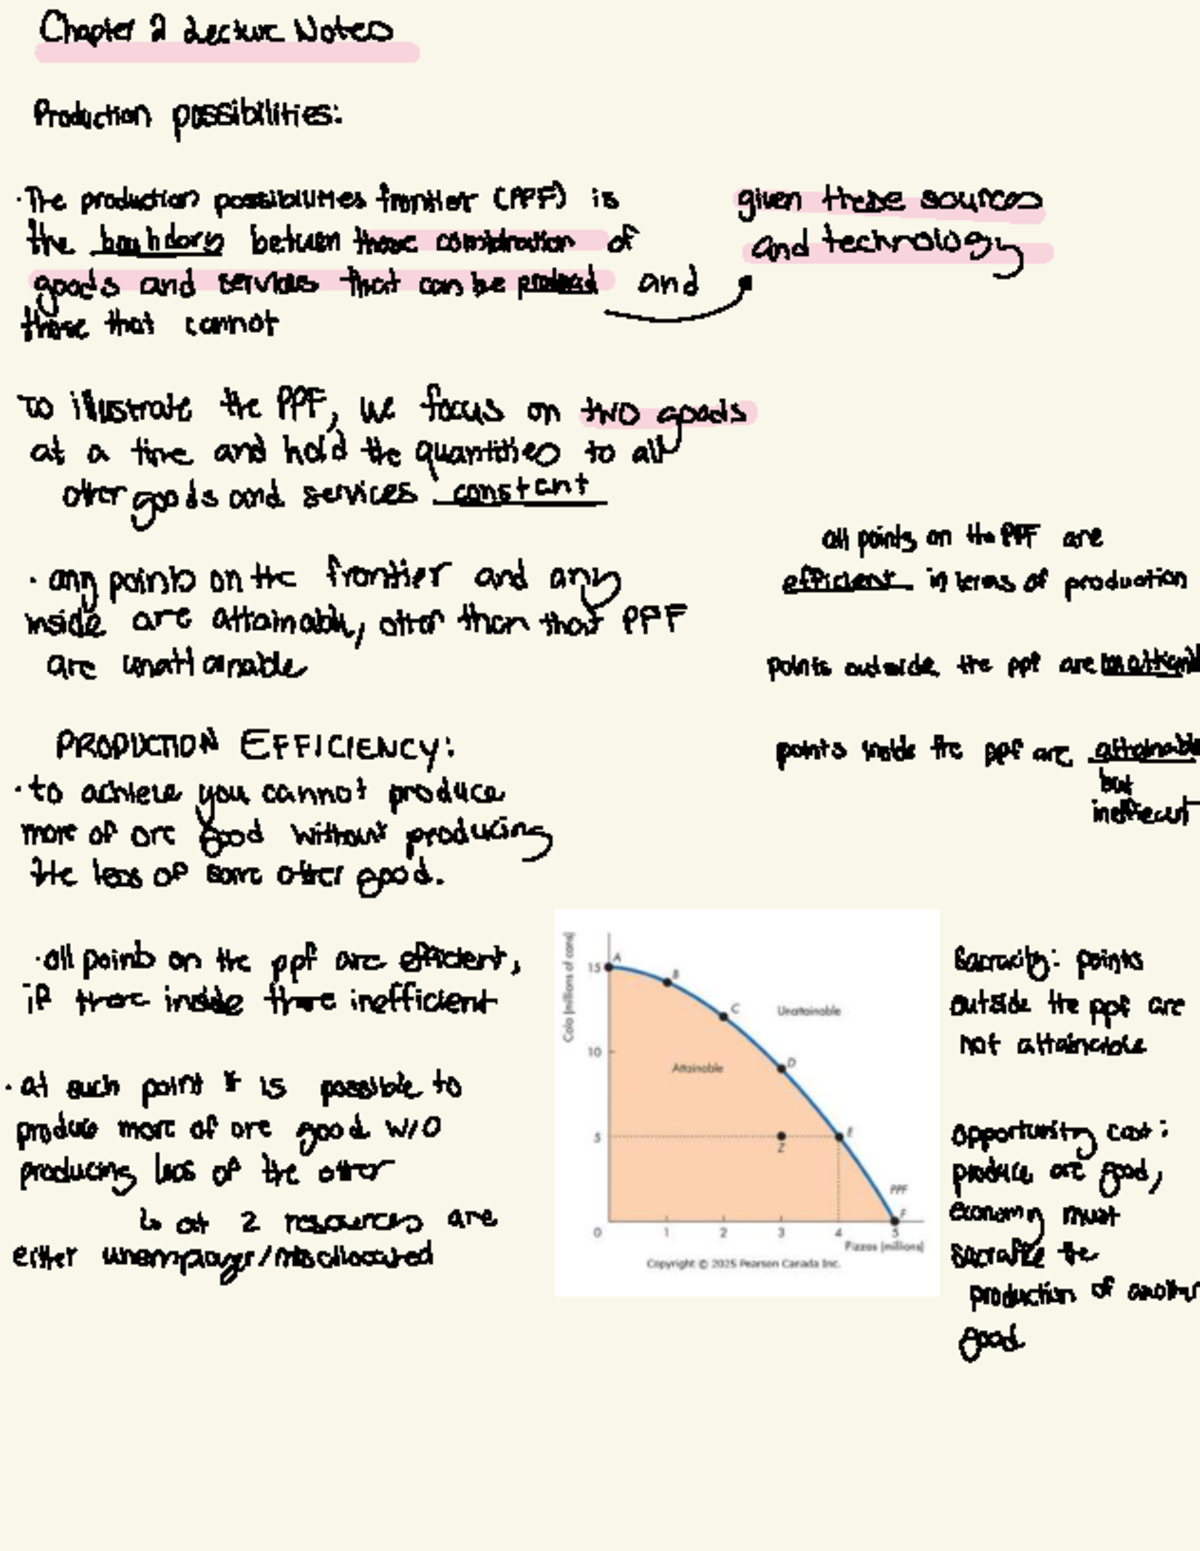 Chapter 2 Lecture Notes
Production possibilities:
· The production possibilities frontier (PPF) is
the boundary between those combination of
goods and services that can be produced and
those that cannot
given these sources
and technology
To illustrate the PPF, we focus on two goods
at a time and hold the quantities to all
other goods and services constant
· any points on the frontier and any
inside are attainable, other than that PPF
are unattainable
all points on the PPF are
efficient in terms of production
points outside the ppf are unattainable
points inside the ppf are attainable
but
inefficient
PRODUCTION EFFICIENCY:
· to achieve you cannot produce
more of one good without producing
the less of some other good.
· all points on the ppf are efficient,
if there inside there inefficient
· at such point it is possible to
produce more of one good w/o
producing less of the other
↳ at Z resources are
either unemployed/misallocated
Cola (millions of cans)
15
10
5
0
1
2
3
4
5
A
B
C
D
E
F
Z
Unattainable
Attainable
PPF
Pizzas (millions)
Copyright © 2025 Pearson Canada Inc.
Scarcity: points
outside the ppf are
not attainable
opportunity cost:
produce one good,
economy must
sacrafice the
production of another
good